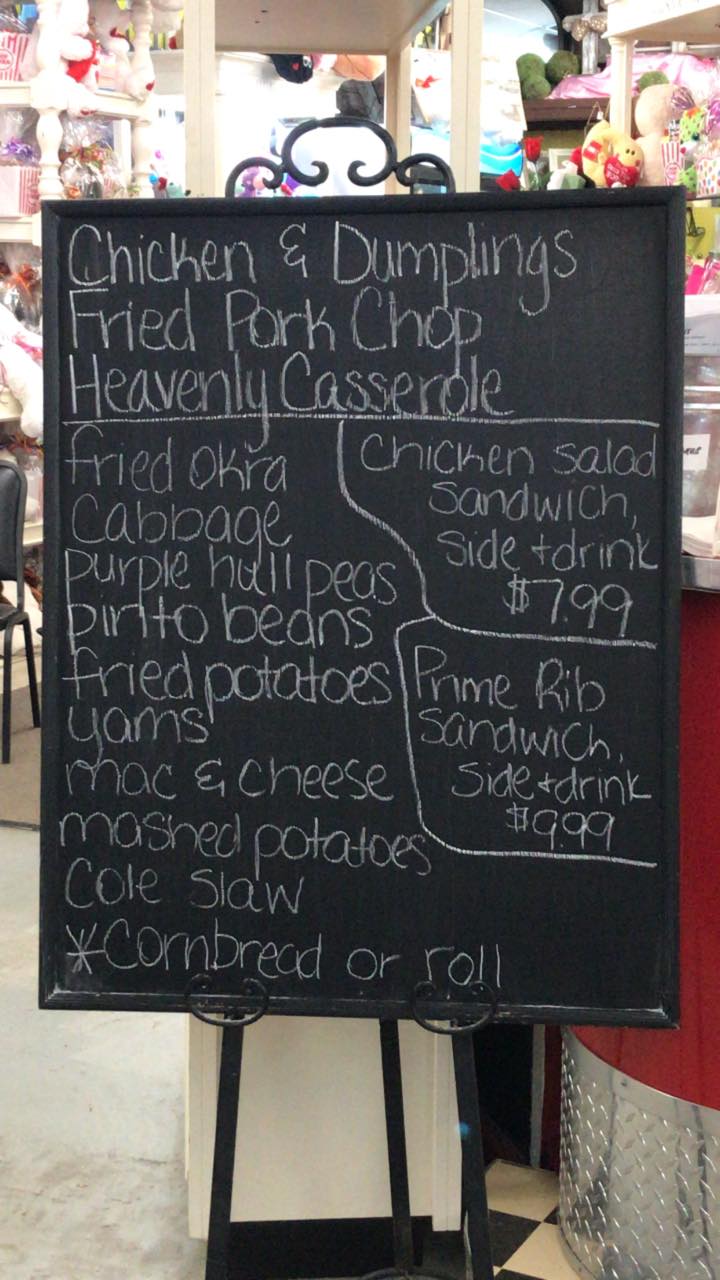 Chicken & Dumplings
Fried Pork Chop
Heavenly Casserole
fried okra
Cabbage
purple hull peas
pinto beans
fried potatoes
yams
mac & cheese
mashed potatoes
Cole Slaw
*Cornbread or roll
Chicken salad
Sandwich,
Side + drink
$7.99
Prime Rib
Sandwich,
Side + drink
$9.99